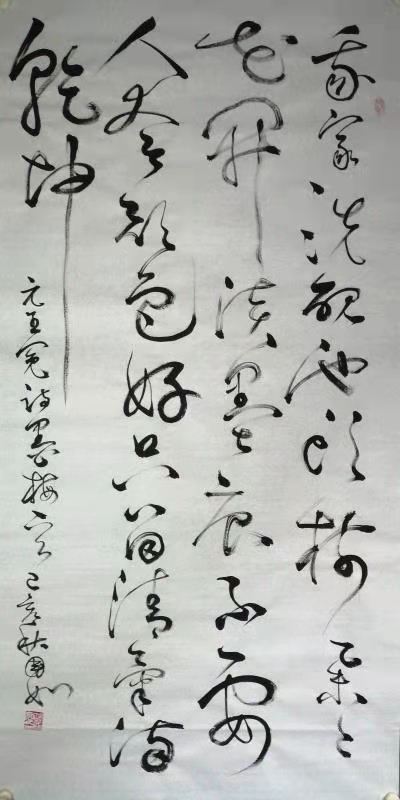 我家洗硯池頭樹朵々
花開淡墨痕不要
人夸顏色好只留清氣滿
乾坤
元王冕詩墨梅一首己亥秋